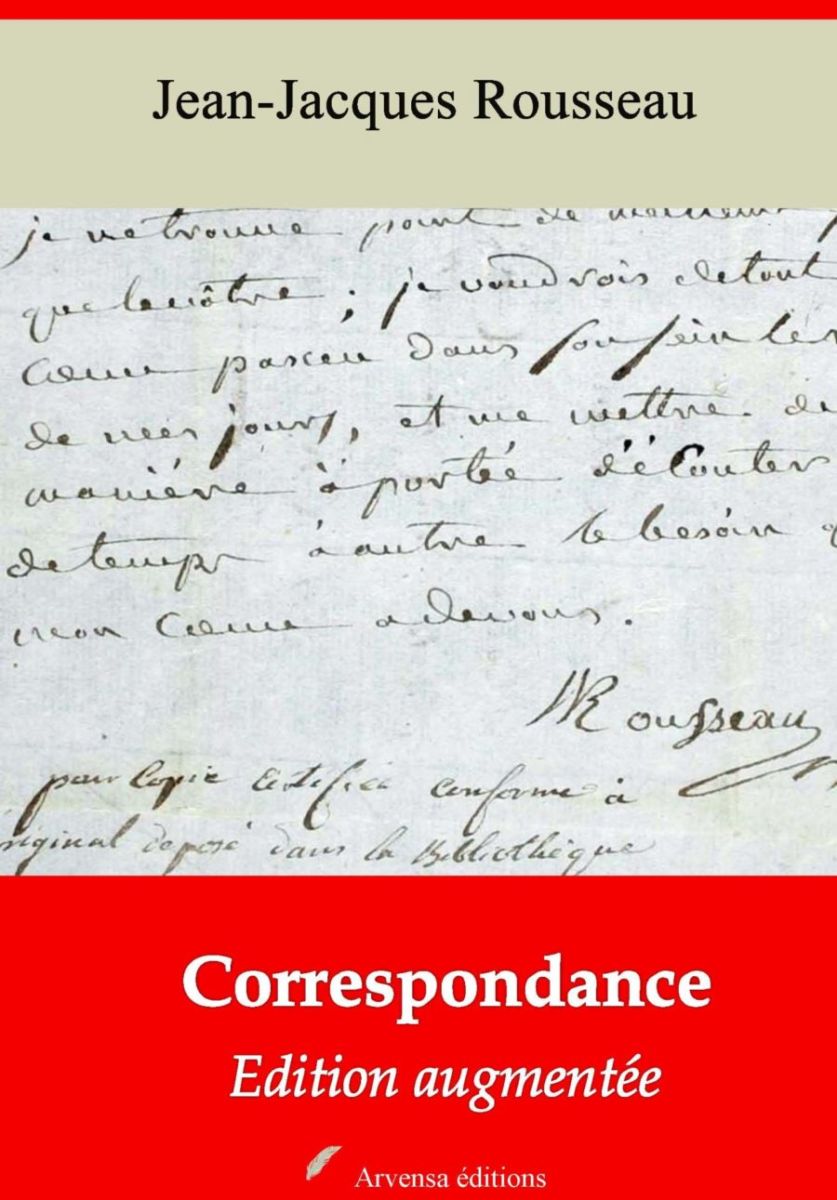 Jean-Jacques Rousseau
je ne trouve point de meilleur
que le nôtre ; je voudrois de tout
cœur passer dans son sein
de mes jours, et me mettre
manière à portée d'écouter
de temps à autre le besoin
mon cœur a de vous.
JJRousseau
pour Copie Certifiée conforme à
original déposé dans la Bibliothèque
Correspondance
Edition augmentée
Arvensa éditions